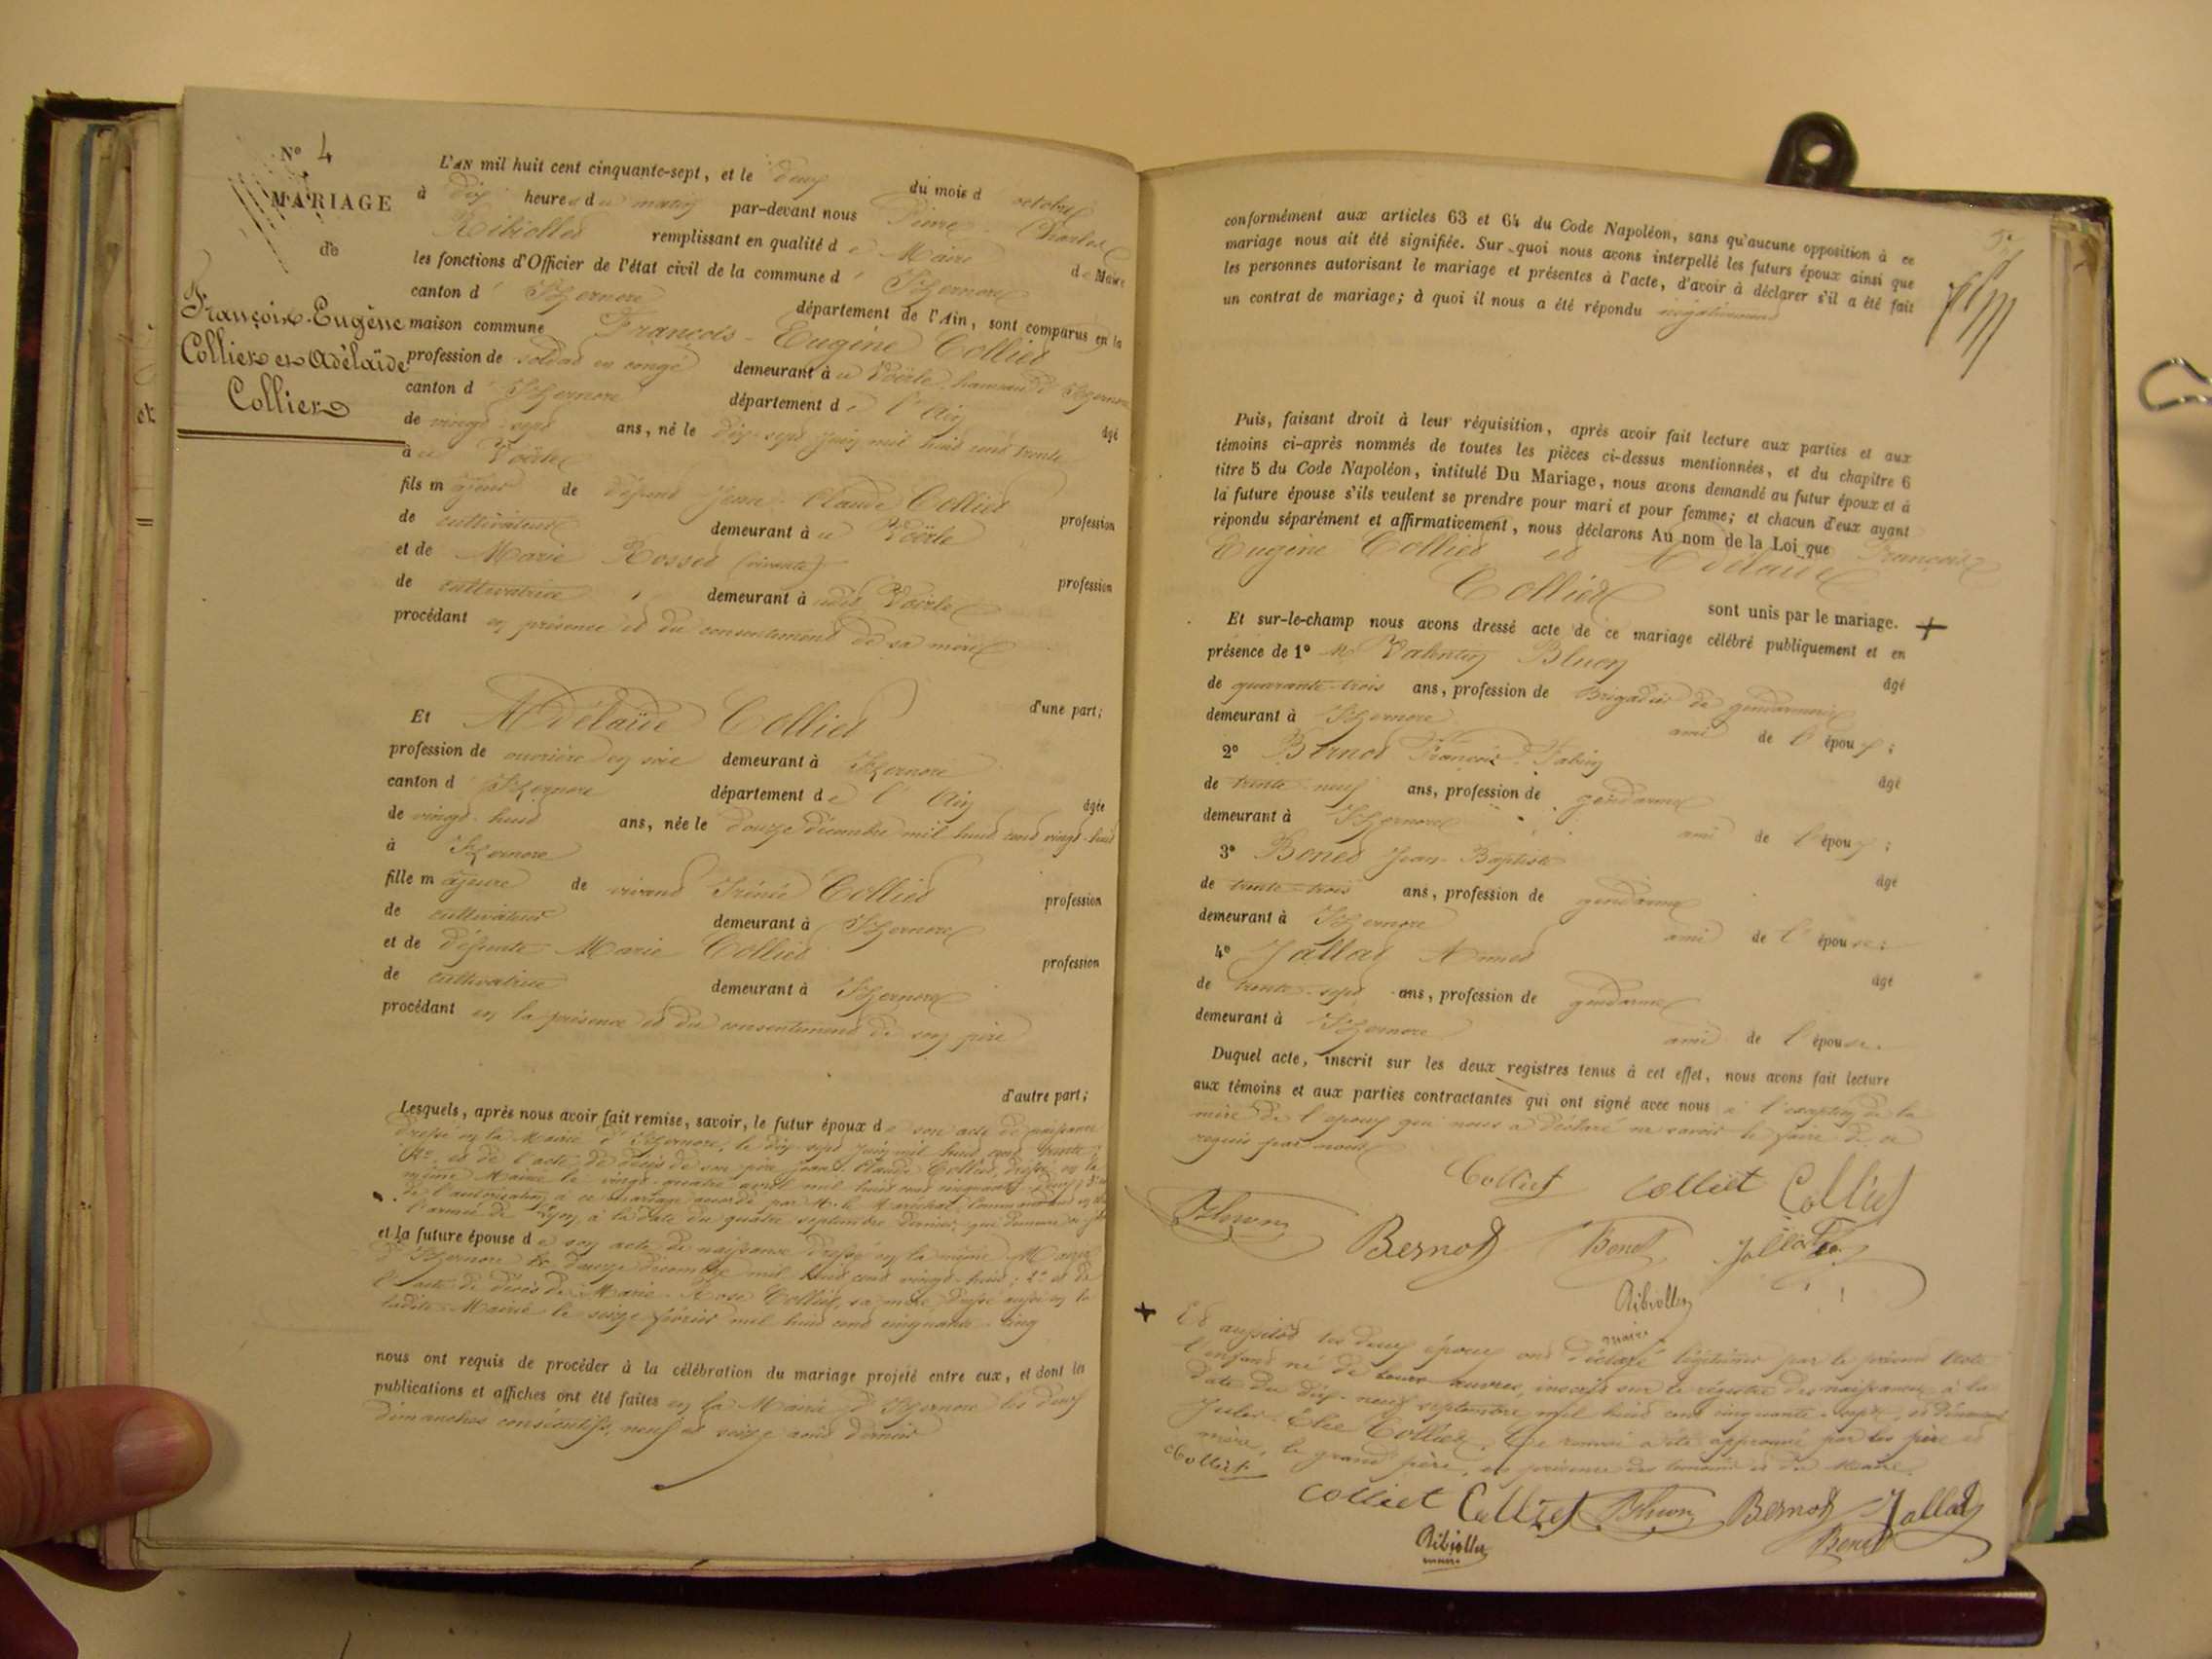 N° 4
MARIAGE
de
François-Eugène
Colliet et Adélaïde
Colliet
L'AN mil huit cent cinquante-sept, et le deux du mois d'octobre
à dix heures du matin par-devant nous Pierre Charles
Ribiollet remplissant en qualité de Maire
les fonctions d'Officier de l'état civil de la commune d'Izernore
canton d'Izernore département de l'Ain, sont comparus en la
maison commune François-Eugène Colliet
profession de soldat en congé demeurant à Voërle, hameau d'Izernore
canton d'Izernore département de l'Ain âgé
de vingt-sept ans, né le dix-sept juin mil huit cent trente
à Voërle
fils majeur de défunt Jean-Claude Colliet profession
de cultivateur demeurant à Voërle
et de Marie Rosset (vivante) profession
de cultivatrice demeurant à Voërle
procédant en présence et du consentement de sa mère
d'une part;
Et Adélaïde Colliet
profession de ouvrière en soie demeurant à Izernore
canton d'Izernore département de l'Ain âgée
de vingt-huit ans, née le douze décembre mil huit cent vingt-huit
à Izernore
fille majeure de vivant Irénée Colliet profession
de cultivateur demeurant à Izernore
et de défunte Marie Colliet profession
de cultivatrice demeurant à Izernore
procédant en la présence et du consentement de son père
d'autre part;
Lesquels, après nous avoir fait remise, savoir, le futur époux de son acte de naissance
dressé en la Mairie d'Izernore, le dix-sept juin mil huit cent trente;
2° et de l'acte de décès de son père Jean-Claude Colliet, dressé en la
même Mairie le vingt-quatre avril mil huit cent cinquante-deux; 3°
de l'autorisation à ce mariage accordé par M. le Maréchal Commandant en chef
l'armée de Lyon, à la date du quatre septembre dernier,
et la future épouse de son acte de naissance dressé en la même Mairie
d'Izernore le douze décembre mil huit cent vingt-huit; 2° et de
l'acte de décès de Marie-Rose Colliet, sa mère, dressé aussi en la
ladite Mairie le seize février mil huit cent cinquante-cinq
nous ont requis de procéder à la célébration du mariage projeté entre eux, et dont les
publications et affiches ont été faites en la Mairie d'Izernore les deux
dimanches consécutifs, neuf et seize août dernier
conformément aux articles 63 et 64 du Code Napoléon, sans qu'aucune opposition à ce
mariage nous ait été signifiée. Sur quoi nous avons interpellé les futurs époux ainsi que
les personnes autorisant le mariage et présentes à l'acte, d'avoir à déclarer s'il a été fait
un contrat de mariage; à quoi il nous a été répondu négativement
Puis, faisant droit à leur réquisition, après avoir fait lecture aux parties et aux
témoins ci-après nommés de toutes les pièces ci-dessus mentionnées, et du chapitre 6
titre 5 du Code Napoléon, intitulé Du Mariage, nous avons demandé au futur époux et à
la future épouse s'ils veulent se prendre pour mari et pour femme; et chacun d'eux ayant
répondu séparément et affirmativement, nous déclarons Au nom de la Loi que François
Eugène Colliet et Adélaïde
Colliet sont unis par le mariage. +
Et sur-le-champ nous avons dressé acte de ce mariage célébré publiquement et en
présence de 1° M Valentin Bluon âgé
de quarante-trois ans, profession de Brigadier de gendarmerie
demeurant à Izernore ami de l'époux;
2° Bernod François Fabien âgé
de trente-neuf ans, profession de gendarme
demeurant à Izernore ami de l'époux;
3° Benet Jean-Baptiste âgé
de trente-trois ans, profession de gendarme
demeurant à Izernore ami de l'épouse;
4° Jallat Aimé âgé
de trente-sept ans, profession de gendarme
demeurant à Izernore ami de l'épouse.
Duquel acte, inscrit sur les deux registres tenus à cet effet, nous avons fait lecture
aux témoins et aux parties contractantes qui ont signé avec nous à l'exception de la
mère de l'époux qui nous a déclaré ne savoir le faire de ce
requis par nous
Colliet colliet Colliet
Bluon Bernod Benet Jallat
Ribiollet
maire
+ Et aussitôt les deux époux ont déclaré légitimer par le présent acte
l'enfant né de leurs œuvres, inscrit sur le registre des naissances à la
date du dix-neuf septembre mil huit cent cinquante-sept, et dénommé
Jules-Élie Colliet. Ce renvoi a été approuvé par les père et
mère, le grand père, en présence des témoins et du Maire.
Colliet colliet Colliet Bluon Bernod Jallat
Ribiollet
maire
Benet